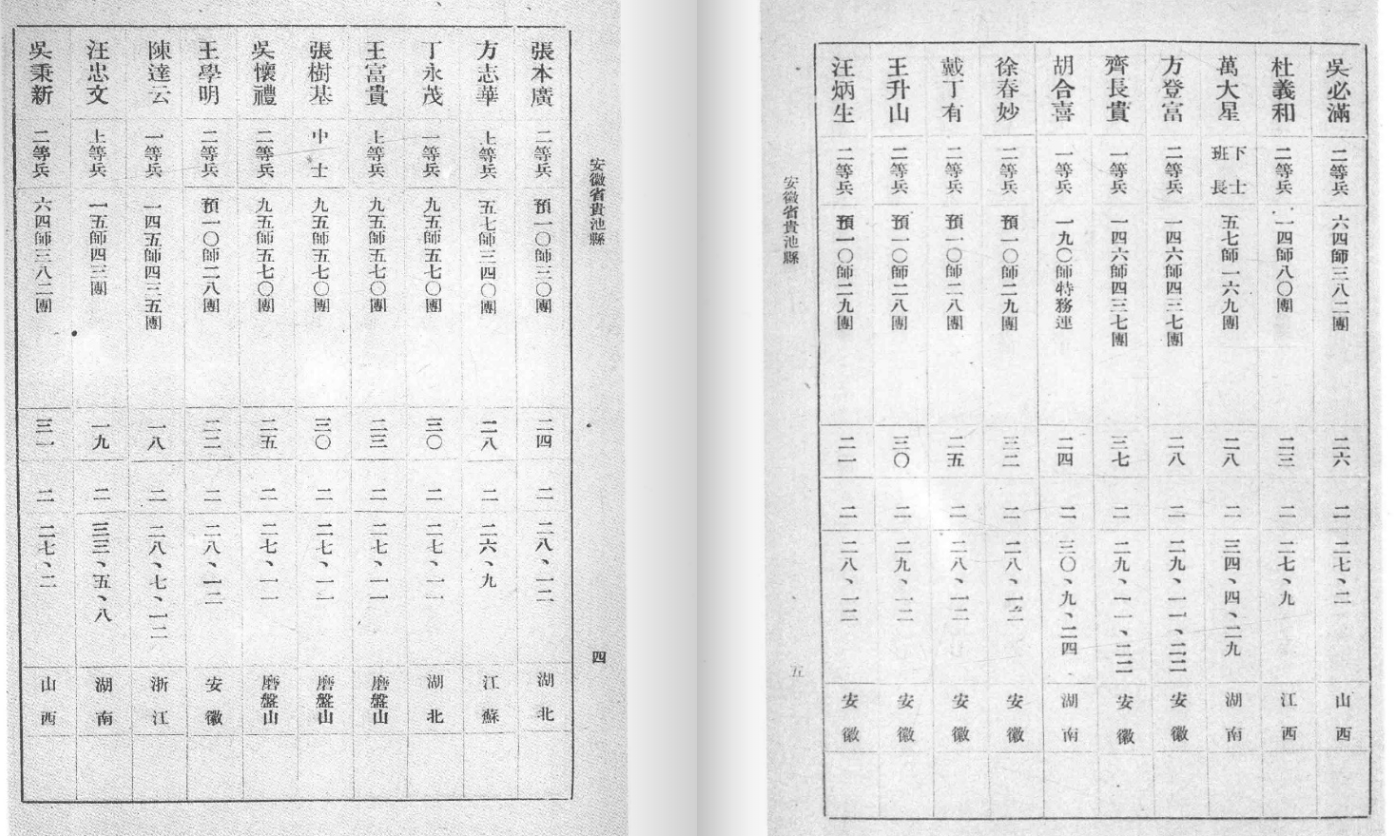 安徽省貴池縣 四
張本廣 二等兵 預一〇師三〇團 二四 二 二八、一二 湖北
方志華 上等兵 五七師三四〇團 二八 二 二六、九 江蘇
丁永茂 一等兵 九五師五七〇團 三〇 二 二七、一一 湖北
王富貴 上等兵 九五師五七〇團 二三 二 二七、一一 磨盤山
張樹基 中士 九五師五七〇團 三〇 二 二七、一一 磨盤山
吳懷禮 二等兵 九五師五七〇團 二五 二 二七、一一 磨盤山
王學明 二等兵 預一〇師二八團 二二 二 二八、一二 安徽
陳達云 一等兵 一四五師四三五團 一八 二 二八、七、一二 浙江
汪忠文 上等兵 一五師四三團 一九 二 三三、五、八 湖南
吳秉新 二等兵 六四師三八二團 三一 二 二七、二 山西
吳必滿 二等兵 六四師三八二團 二六 二 二七、二 山西
杜義和 二等兵 一四師八〇團 二三 二 二七、九 江西
萬大星 下士班長 五七師一六九團 二八 二 三四、四、二九 湖南
方登富 二等兵 一四六師四三七團 二八 二 二九、一一、二二 安徽
齊長貴 一等兵 一四六師四三七團 三七 二 二九、一一、二二 安徽
胡合喜 一等兵 一九〇師特務連 二四 二 三〇、九、二四 湖南
徐春妙 二等兵 預一〇師二九團 三二 二 二八、一二 安徽
戴丁有 二等兵 預一〇師二八團 二五 二 二八、一二 安徽
王升山 二等兵 預一〇師二八團 三〇 二 二九、一二 安徽
汪炳生 二等兵 預一〇師二九團 二一 二 二八、一二 安徽
安徽省貴池縣 五